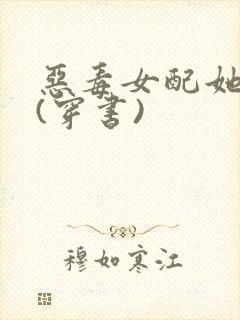 惡毒女配她
(穿書)
穆如寒江